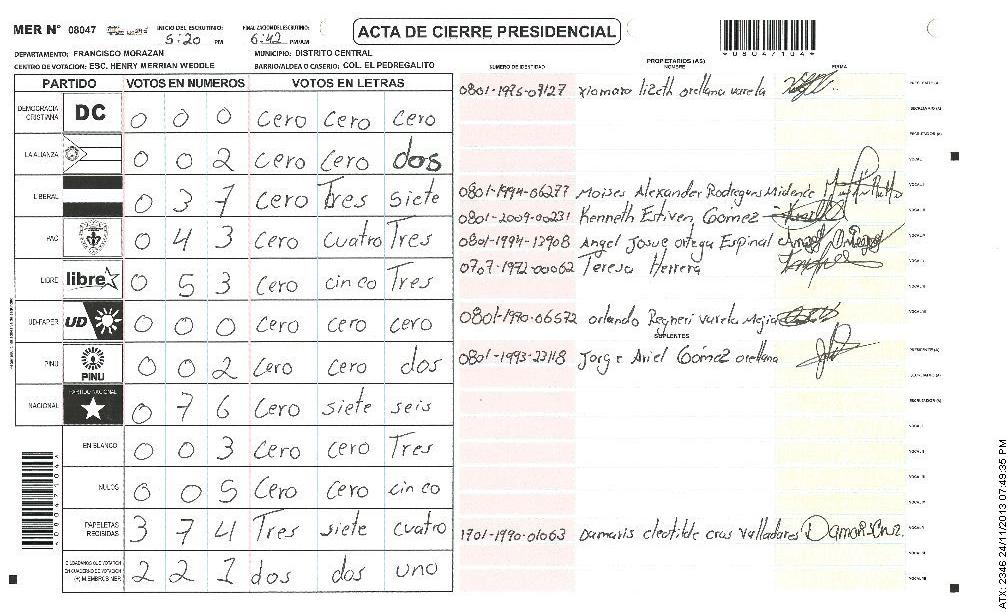 MER Nº 08047
INICIO DEL ESCRUTINIO: 5:20 PM
FINALIZACION DEL ESCRUTINIO: 6:42 PM/AM
ACTA DE CIERRE PRESIDENCIAL
*08047104*
DEPARTAMENTO: FRANCISCO MORAZAN
MUNICIPIO: DISTRITO CENTRAL
CENTRO DE VOTACION: ESC. HENRY MERRIAN WEDDLE
BARRIO/ALDEA O CASERIO: COL. EL PEDREGALITO
PARTIDO VOTOS EN NUMEROS VOTOS EN LETRAS
DEMOCRACIA CRISTIANA DC 0 0 0 Cero Cero Cero
LA ALIANZA 0 0 2 Cero Cero dos
LIBERAL 0 3 7 Cero Tres siete
PAC 0 4 3 Cero cuatro Tres
LIBRE libre 0 5 3 Cero cinco Tres
UD-FAPER UD 0 0 0 Cero Cero cero
PINU PINU 0 0 2 Cero Cero dos
NACIONAL PARTIDO NACIONAL 0 7 6 Cero siete seis
EN BLANCO 0 0 3 Cero cero Tres
NULOS 0 0 5 Cero Cero cinco
PAPELETAS RECIBIDAS 3 7 4 Tres siete cuatro
CIUDADANOS QUE VOTARON EN CUADERNO DE VOTACION (+) MIEMBROS MER 2 2 1 dos dos uno
PROPIETARIOS (AS)
NUMERO DE IDENTIDAD NOMBRE FIRMA
0801-1975-07127 Xiomara lizeth orellana varela
0801-1994-06277 Moises Alexander Rodrigues Midence
0801-2009-00231 Kenneth Estiven Gómez
0801-1994-13908 Angel Josue ortega Espinal
0707-1972-00062 Teresa Herrera
0801-1990-06572 orlando Regneri varela Mejia
SUPLENTES
0801-1993-23118 Jorge Ariel Gómez orellana
1701-1990-01063 Damaris cleotilde cruz valladares Damaris Cruz.
ATX: 2346 24/11/2013 07:49:35 PM